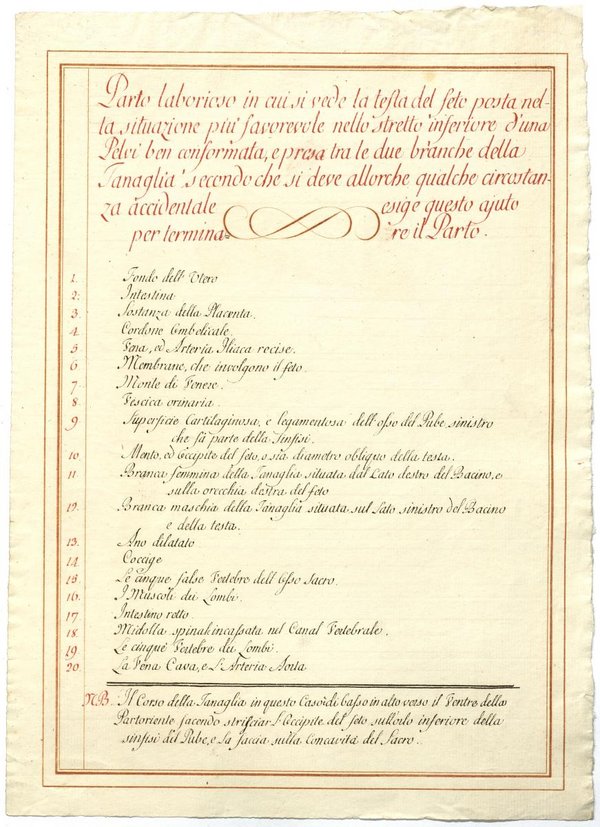 Parto laborioso in cui si vede la testa del feto posta nel-
la situazione piu' favorevole nello stretto inferiore d'una
Pelvi ben conformata, e presa tra le due branche della
Tanaglia secondo che si deve allorche qualche circostan-
za accidentale esige questo ajuto
per termina= re il Parto.
1. Fondo dell' Utero
2. Intestina
3. Sostanza della Placenta.
4. Cordone Ombelicale.
5 Vena, ed Arteria Iliaca recise.
6. Membrane, che involgono il feto.
7. Monte di Venere.
8. Vescica orinaria.
9 Superficie Cartilaginosa, e legamentosa dell' osso del Pube sinistro
che fà parte della Sinfisi.
10. Mento, ed Occipite del feto, o sia diametro obliquo della testa.
11 Branca femmina della Tanaglia situata dal Lato destro del Bacino, e
sulla orecchia destra del feto
12. Branca maschia della Tanaglia situata sul Lato sinistro del Bacino
e della testa.
13. Ano dilatato
14 Coccige
15. Le cinque false Vertebre dell' Osso Sacro.
16. I Muscoli dei Lombi.
17. Intestino retto.
18. Midolla spinal incassata nel Canal Vertebrale.
19. Le cinque Vertebre dei Lombi.
20. La Vena Cava, e L'Arteria Aorta
NB. Il Corso della Tanaglia in questo Caso è di basso in alto verso il Ventre della
Partoriente facendo strisciar L'Occipite del feto sull'orlo inferiore della
sinfisi del Pube, e La faccia sulla Concavità del Sacro.